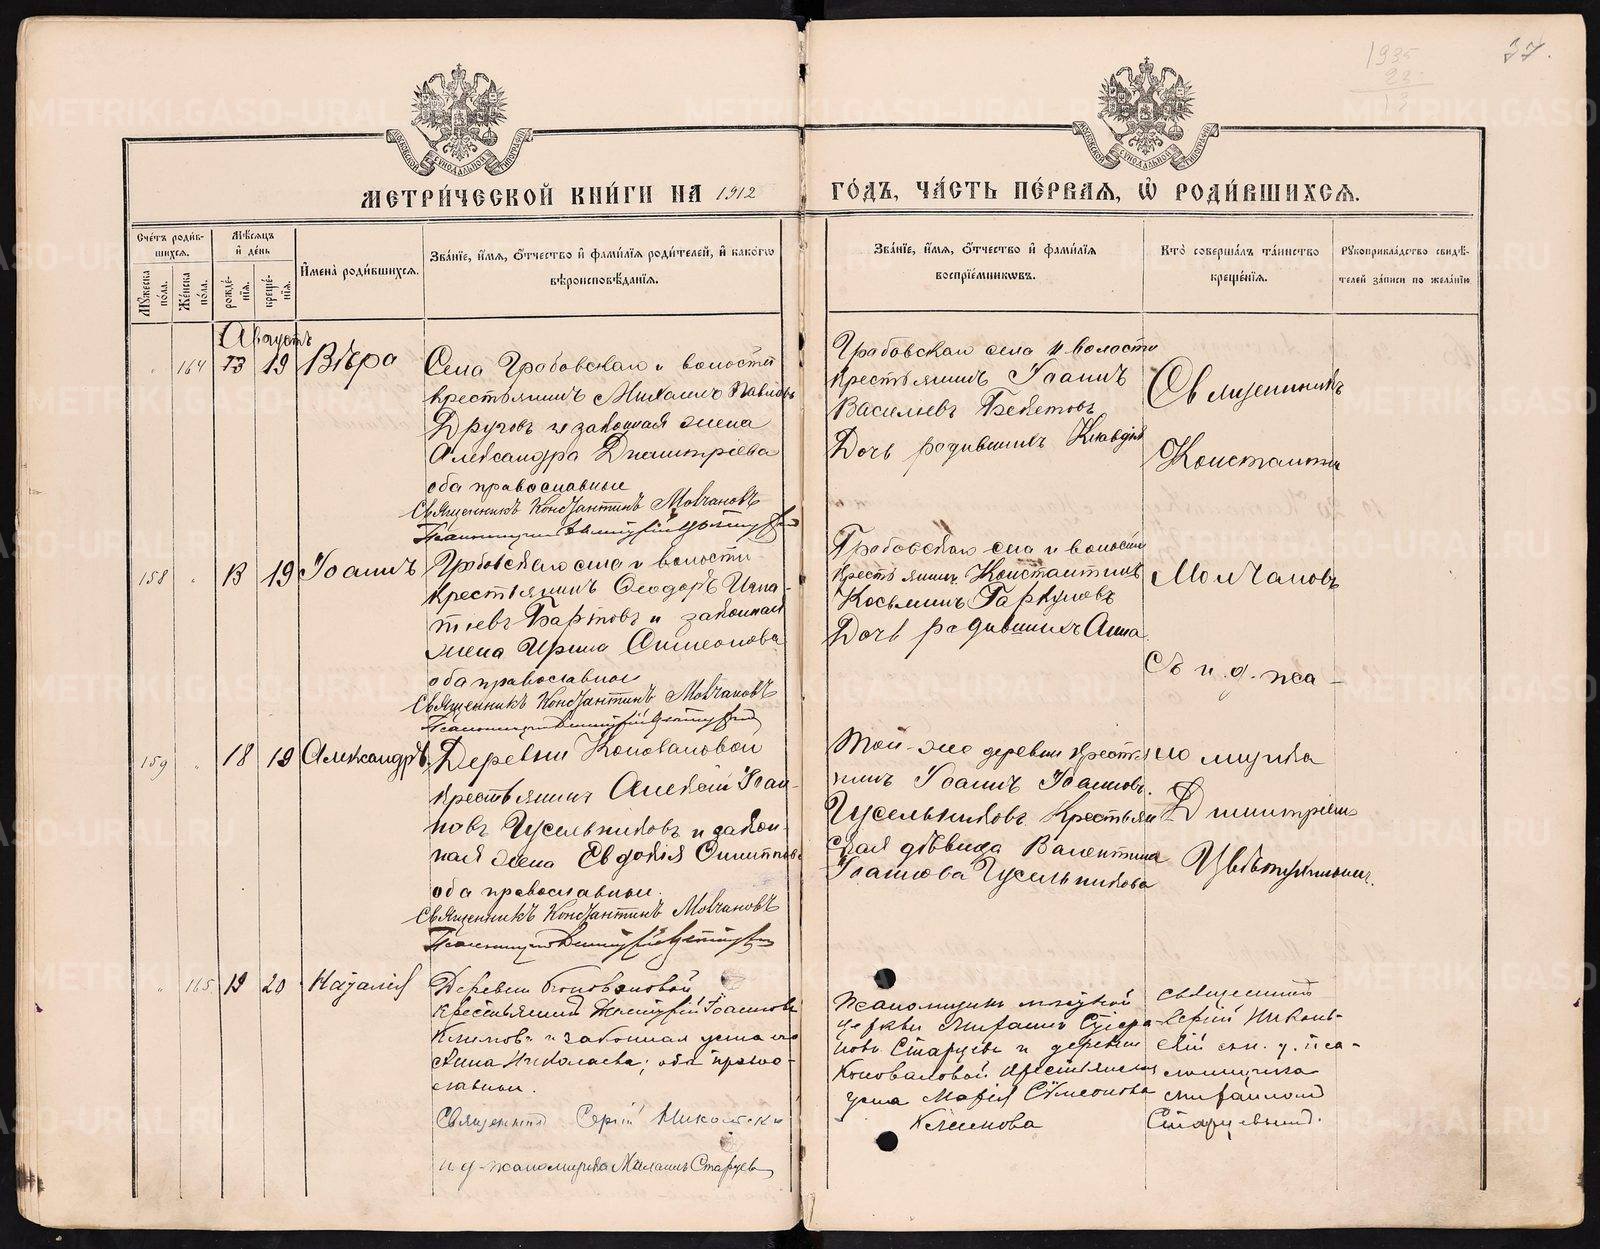 1935
23
13
37.
МОСКОВСКОЙ СѴНОДАЛЬНОЙ ТИПОГРАФІИ
МОСКОВСКОЙ СѴНОДАЛЬНОЙ ТИПОГРАФІИ
МЕТРИ́ЧЕСКОЙ КНИ́ГИ НА 1912 ГО́ДЪ, ЧА́СТЬ ПЕ́РВАЯ, Ѡ҆ РОДИ́ВШИХСѦ.
Сче́тъ роди́в-
шихся.
Мꙋ́жеска по́ла.
Же́нска по́ла.
Мѣ́сяцъ
и҆ де́нь
рожде́-
нїя.
креще́-
нїя.
И҆мена̀ роди́вшихся.
Зва́нїе, и҆́мя, ѻ҆́тчество и҆ фами́лїя роди́телей, и҆ како́гѡ
вѣроисповѣ́данїя.
Зва́нїе, и҆́мя, ѻ҆́тчество и҆ фами́лїя
воспрїе́мникѡвъ.
Кто̀ соверша́лъ та́инство
креще́нїя.
Рꙋкоприкла́дство свидѣ́-
телей за́писи по жела́нїю
Августъ
" 164 13 19 Вѣра
Села Грабовскаго и волости
крестьянинъ Михаилъ Павловъ
Друговъ и законная жена
Александра Димитріева
оба православные
Священникъ Константинъ Молчановъ
Псаломщикъ Димитрій Цвѣтухинъ
Грабовскаго села и волости
крестьянинъ Іоаннъ
Васильевъ Бекетовъ
Дочь родившихъ Клавдія
Священникъ
Константинъ
158 " 13 19 Іоаннъ
Грабовскаго села и волости
крестьянинъ Ѳеодоръ Игна-
тьевъ Бартовъ и законная
жена Ирина Симеонова
оба православные
Священникъ Константинъ Молчановъ
Псаломщикъ Димитрій
Грабовскаго села и волости
крестьянинъ Константинъ
Косьминъ Гаркуновъ
Дочь родившихъ Анна
Молчановъ
Съ и. д. пса-
159 " 18 19 Александръ
Деревни Коноваловой
крестьянинъ Алексій Іоан-
новъ Гусельниковъ и закон-
ная жена Евдокія Филиппова
оба православные.
Священникъ Константинъ Молчановъ
Псаломщикъ Димитрій
Той-же деревни крестья-
нинъ Іоаннъ Іоанновъ
Гусельниковъ. Крестьян-
ская дѣвица Валентина
Іоаннова Гусельникова
ломщика
Димитріемъ
" 165. 19 20 Наталія
Деревни Коноваловой
крестьянинъ Димитрій Іоанновъ
Климовъ и законная жена его
Анна Николаева; оба право-
славные.
Священникъ Сергій Никольскій
и д. псаломщика Михаилъ Старцевъ
Псаломщикъ
церкви Михаилъ
новъ Старцевъ и деревни
Коноваловой крестьянская
жена Марія Симеонова
Климова
Священникъ
Сергій Николь-
скій съ и. д. пса-
ломщика
Михаиломъ
Старцевымъ.
METRIKI.GASO-URAL.RU